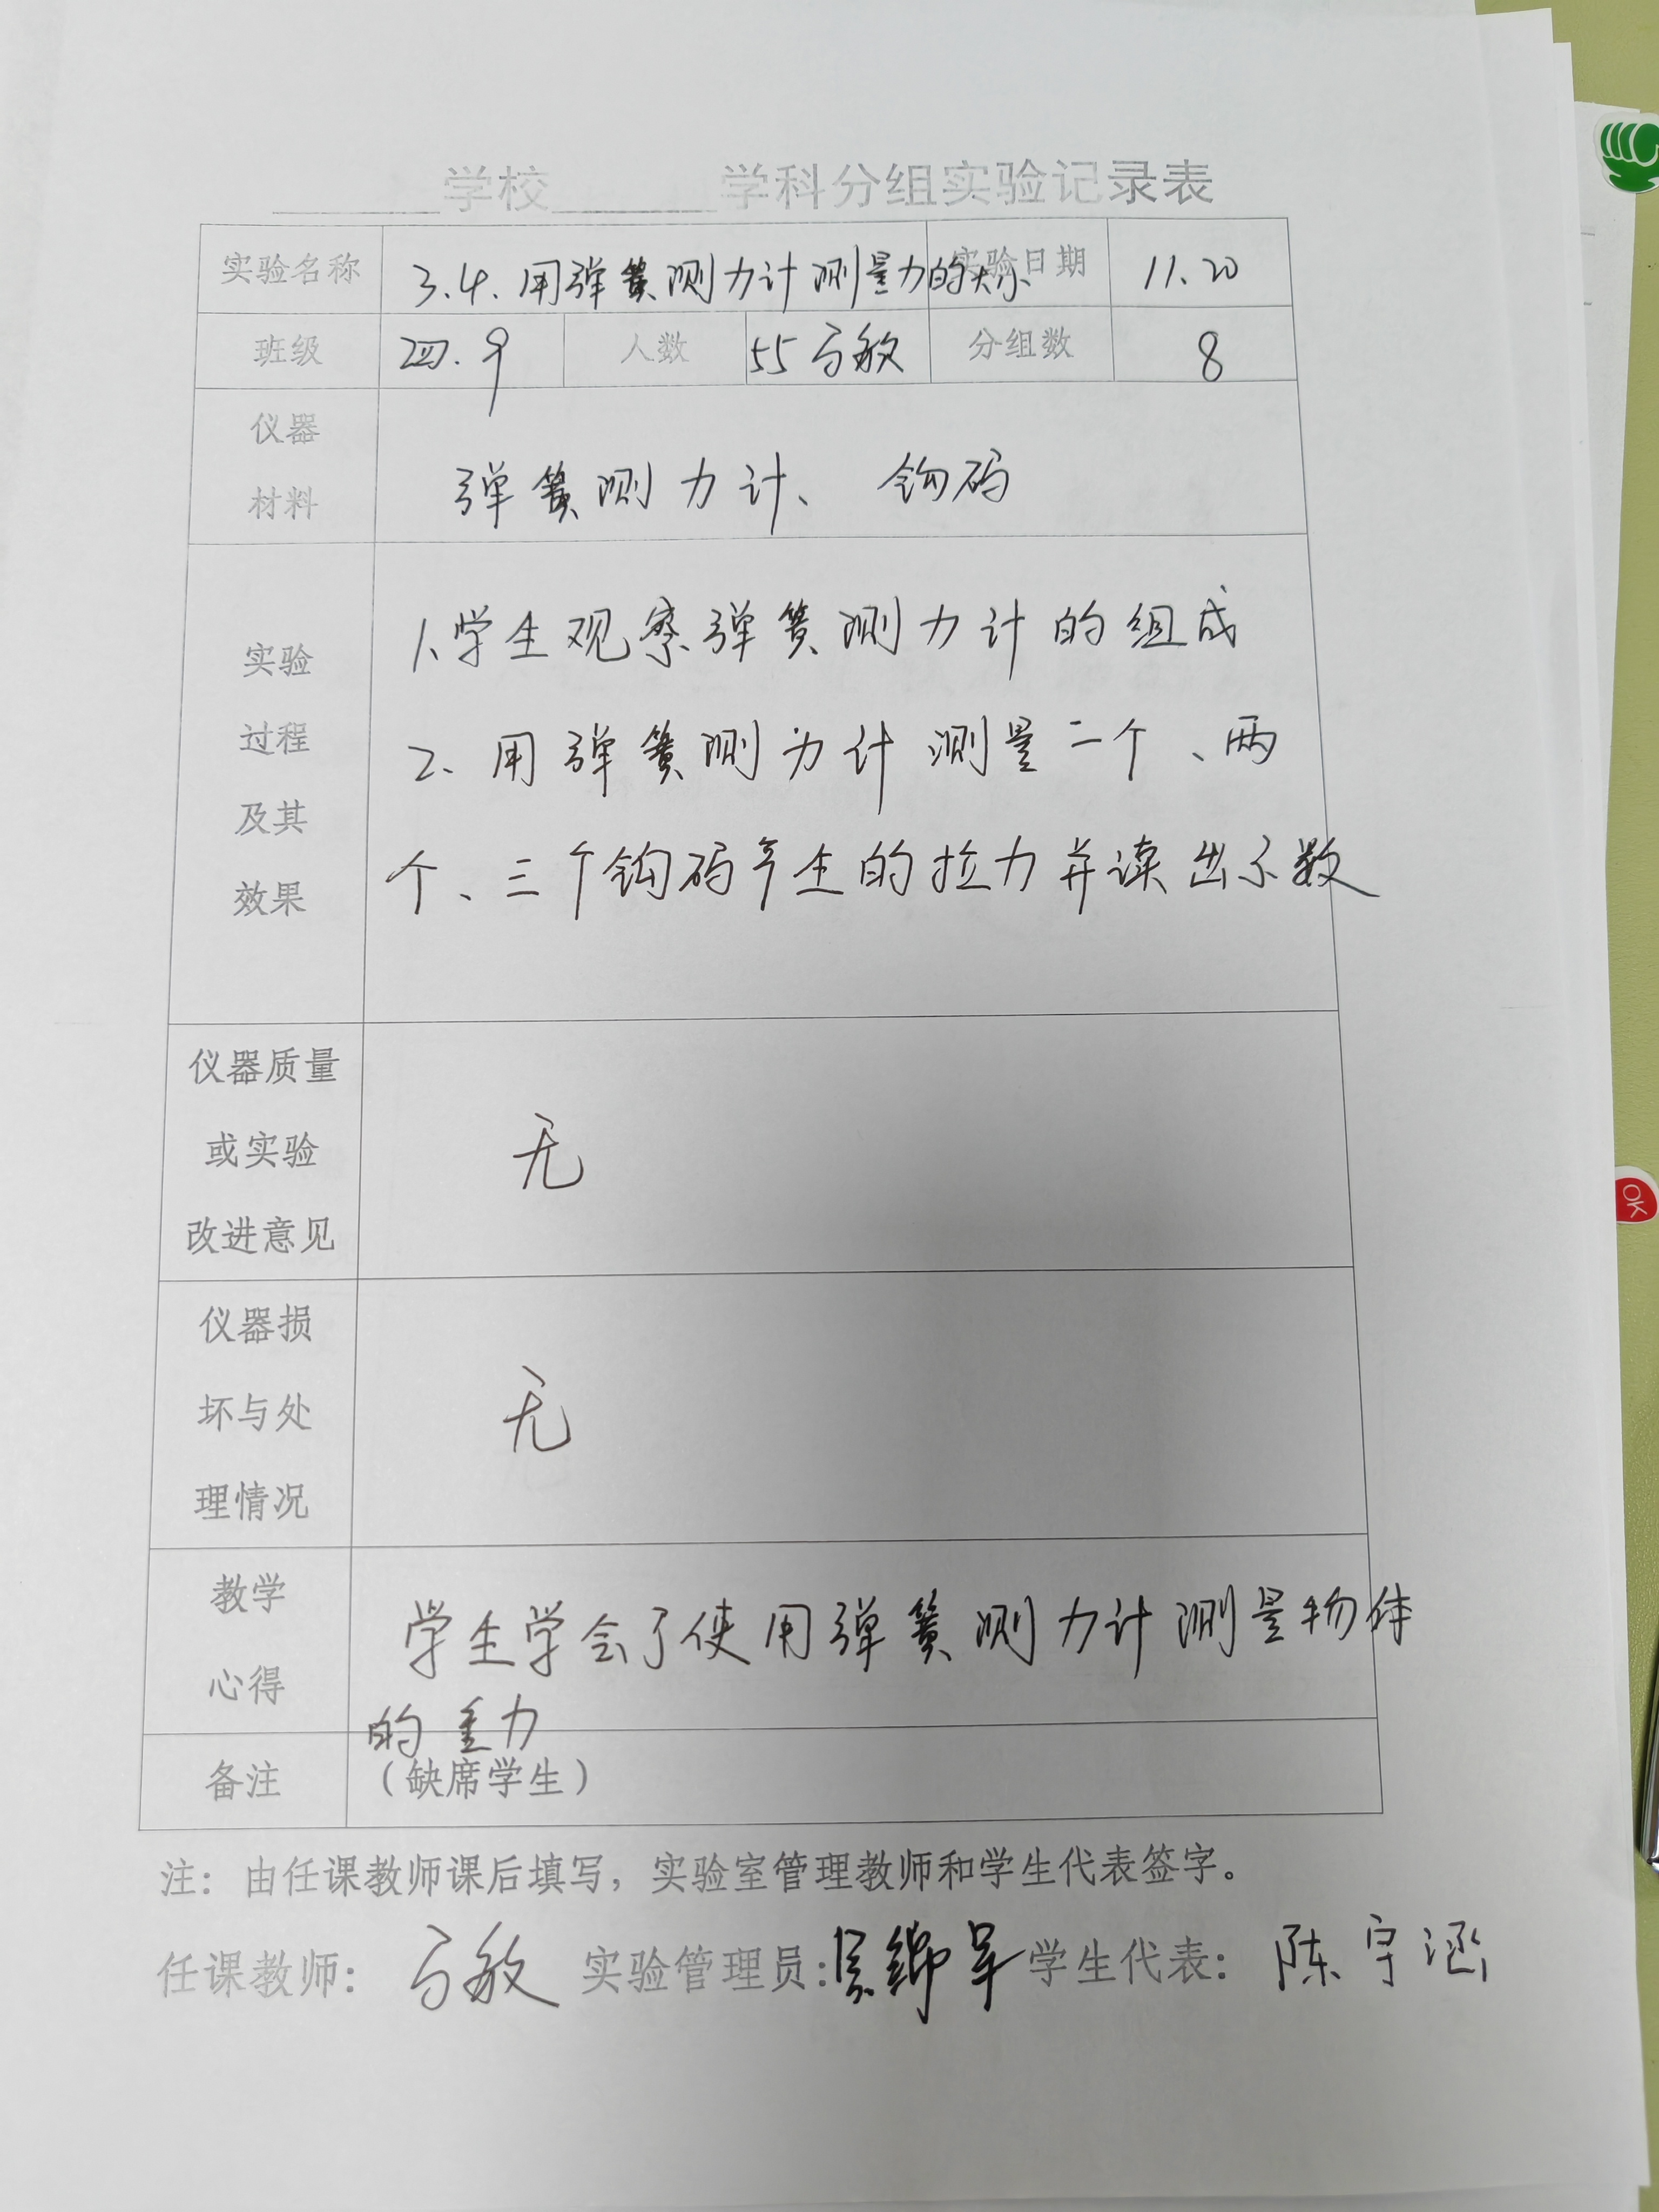 ______学校______学科分组实验记录表
实验名称 3.4.用弹簧测力计测量力的大小 实验日期 11.20
班级 四.9 人数 55 马敏 分组数 8
仪器
材料
弹簧测力计、钩码
实验
过程
及其
效果
1.学生观察弹簧测力计的组成
2、用弹簧测力计测量一个、两
个、三个钩码产生的拉力并读出示数
仪器质量
或实验
改进意见
无
仪器损
坏与处
理情况
无
教学
心得
学生学会了使用弹簧测力计测量物体
的重力
备注 （缺席学生）
注：由任课教师课后填写，实验室管理教师和学生代表签字。
任课教师：马敏 实验管理员: 学生代表：陈宇涵
OK